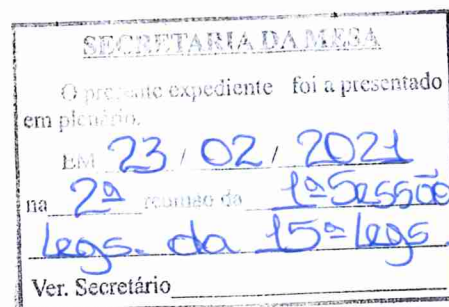 SECRETARIA DA MESA
O presente expediente foi apresentado
em plenário.
EM 23 / 02 / 2021
na 2ª reunião da 1ª Sessão
Legs. da 15ª Legs.
Ver. Secretário